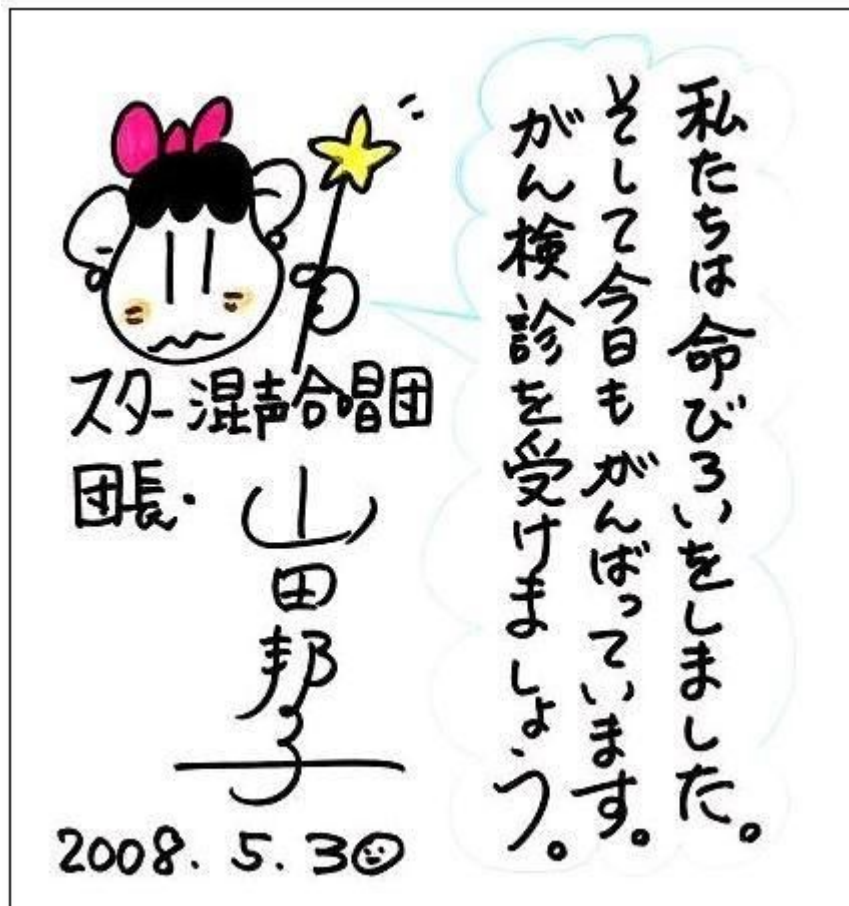 私たちは命びろいをしました。
そして今日もがんばっています。
がん検診を受けましょう。
スター混声合唱団
団長・
山田邦子
2008.5.30